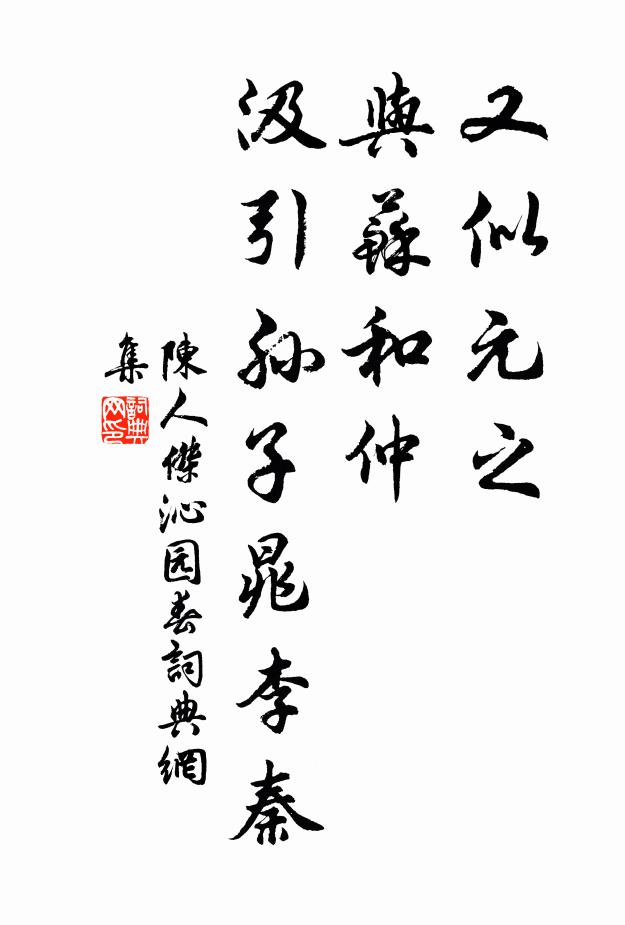 又似元之
與蘇和仲
汲引孙子晁李秦
陳人傑沁园春詞典網
集
詞典
网印